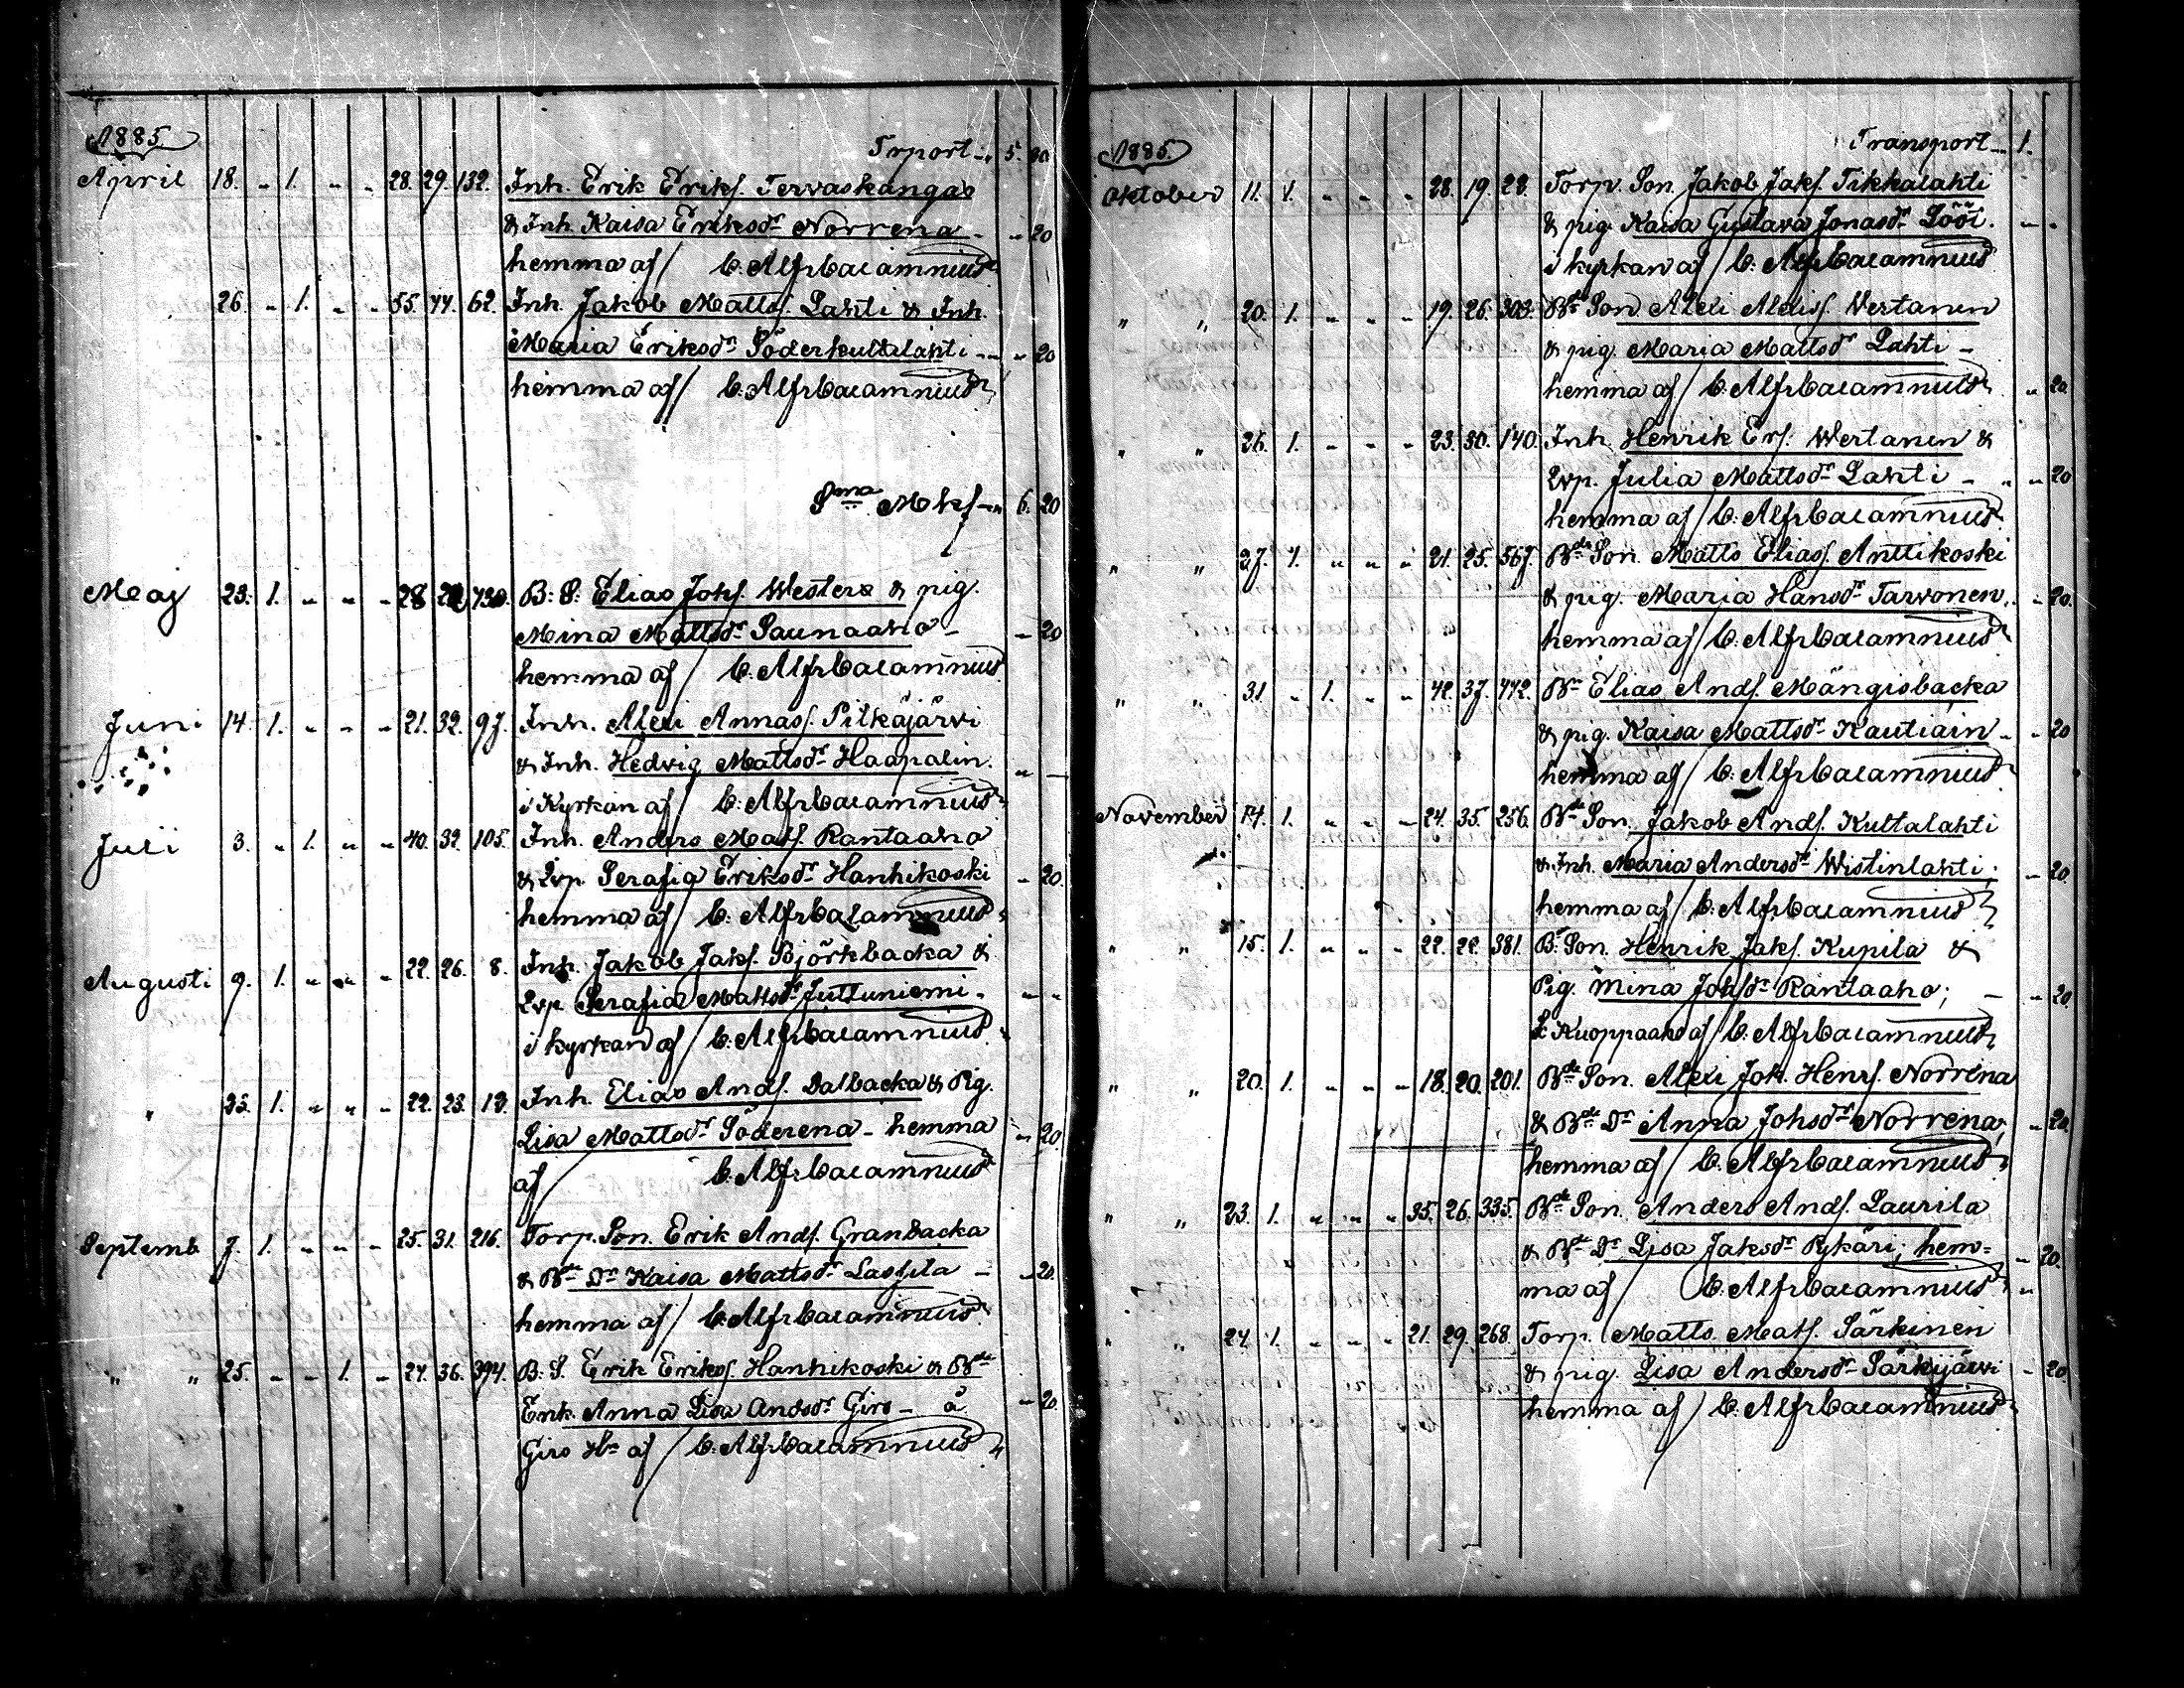 1885.
Trport - " 5. 80
April 18. " 1. " " 28. 29. 132. Inh. Erik Eriks. Tervaskangas
& Inh. Kaisa Eriksdr Norrena - " 20
hemma af / C. Alfr Calamnius
26. " 1. " " 55. 44. 62. Inh. Jakob Matts. Lahti & Inh.
Maria Eriksdr Söderkultalahti - " 20
hemma af / C. Alfr Calamnius
Sma Mkf - " 6. 20
Maj 23. 1. " " " 28 730. B. S. Elias Johs. Westere & pig.
Mina Mattsdr Saunaaho - " 20
hemma af / C. Alfr Calamnius
Juni 14. 1. " " " 21. 32. 97. Inh. Alexi Annas. Pitkäjärvi
& Inh. Hedvig Mattsdr Haapalin. " -
i Kyrkan af / C. Alfr Calamnius
Juli 3. " 1. " " 40. 32. 105. Inh. Anders Mats. Rantaaho
& Qvp. Serafia Eriksdr Hanhikoski - 20.
hemma af / C. Alfr Calamnius
Augusti 9. 1. " " " 22. 26. 8. Inh. Jakob Jaks. Björkbacka &
Qvp Serafia Mattsdr Juttuniemi. " "
i kyrkan af / C. Alfr Calamnius
" 23. 1. " " " 22. 23. 13. Inh. Elias Ands. Dalbacka & Pig.
Lisa Mattsdr Söderena - hemma " 20.
af / C. Alfr Calamnius
Septemb 7. 1. " " " 25. 31. 216. Torp. Son. Erik Ands. Granbacka
& Bde Dr Kaisa Mattsdr Lassila - " 20.
hemma af / C. Alfr Calamnius
" " 25. " " 1. " 27. 36. 394. B. S. Erik Eriks. Hanhikoski & Bde
Enk. Anna Lisa Andsdr Girs - å - 20.
Girs Hn af / C. Alfr Calamnius
1885.
Transport - 1.
Oktober 11. 1. " " " 28. 19. 28. Torp. Son. Jakob Jaks. Tikkalahti
& pig. Kaisa Gustava Jonasdr Lööi. - "
i kyrkan af / C. Alfr Calamnius
" " 20. 1. " " " 19. 26. 303. Bde Son Alexi Alexis. Wertanen
& pig. Maria Mattsdr Lahti -
hemma af / C. Alfr Calamnius " 20.
" " 26. 1. " " " 23. 30. 140. Inh. Henrik Ers. Wertanen &
Qvp. Julia Mattsdr Lahti - " - 20
hemma af / C. Alfr Calamnius
" " 27. 1. " " " 21. 25. 567. Bde Son. Matts Elias. Anttikoski
& pig. Maria Hansdr Tarvonen. - 20.
hemma af / C. Alfr Calamnius
" " 31. " 1. " " 42. 37. 442. Bn Elias Ands. Mångisbacka
& pig. Kaisa Mattsdr Kautiain - - 20
hemma af / C. Alfr Calamnius
November 14. 1. " " " 24. 35. 256. Bde Son. Jakob Ands. Kultalahti
& Inh. Maria Andersdr Wistinlahti; - 20.
hemma af / C. Alfr Calamnius
" " 15. 1. " " " 22. 22. 381. B. Son. Henrik Jaks. Kupila &
Pig. Mina Johsdr Rantaaho; - " 20.
å Kuoppaaho af / C. Alfr Calamnius
" " 20. 1. " " " 18. 20. 201. Bde Son. Alexi Joh. Henrs. Norrena
& Bde Dr Anna Johsdr Norrena; - 20.
hemma af / C. Alfr Calamnius
" " 23. 1. " " " 35. 26. 335. Bde Son. Anders Ands. Laurila
& Bde Dr Lisa Jaksdr Pykäri; hem= - 20.
ma af / C. Alfr Calamnius "
" " 24 1. " " " 21. 29. 268. Torp. Matts Mats. Särkinen
& pig. Lisa Andersdr Särkijärvi - 20.
hemma af / C. Alfr Calamnius